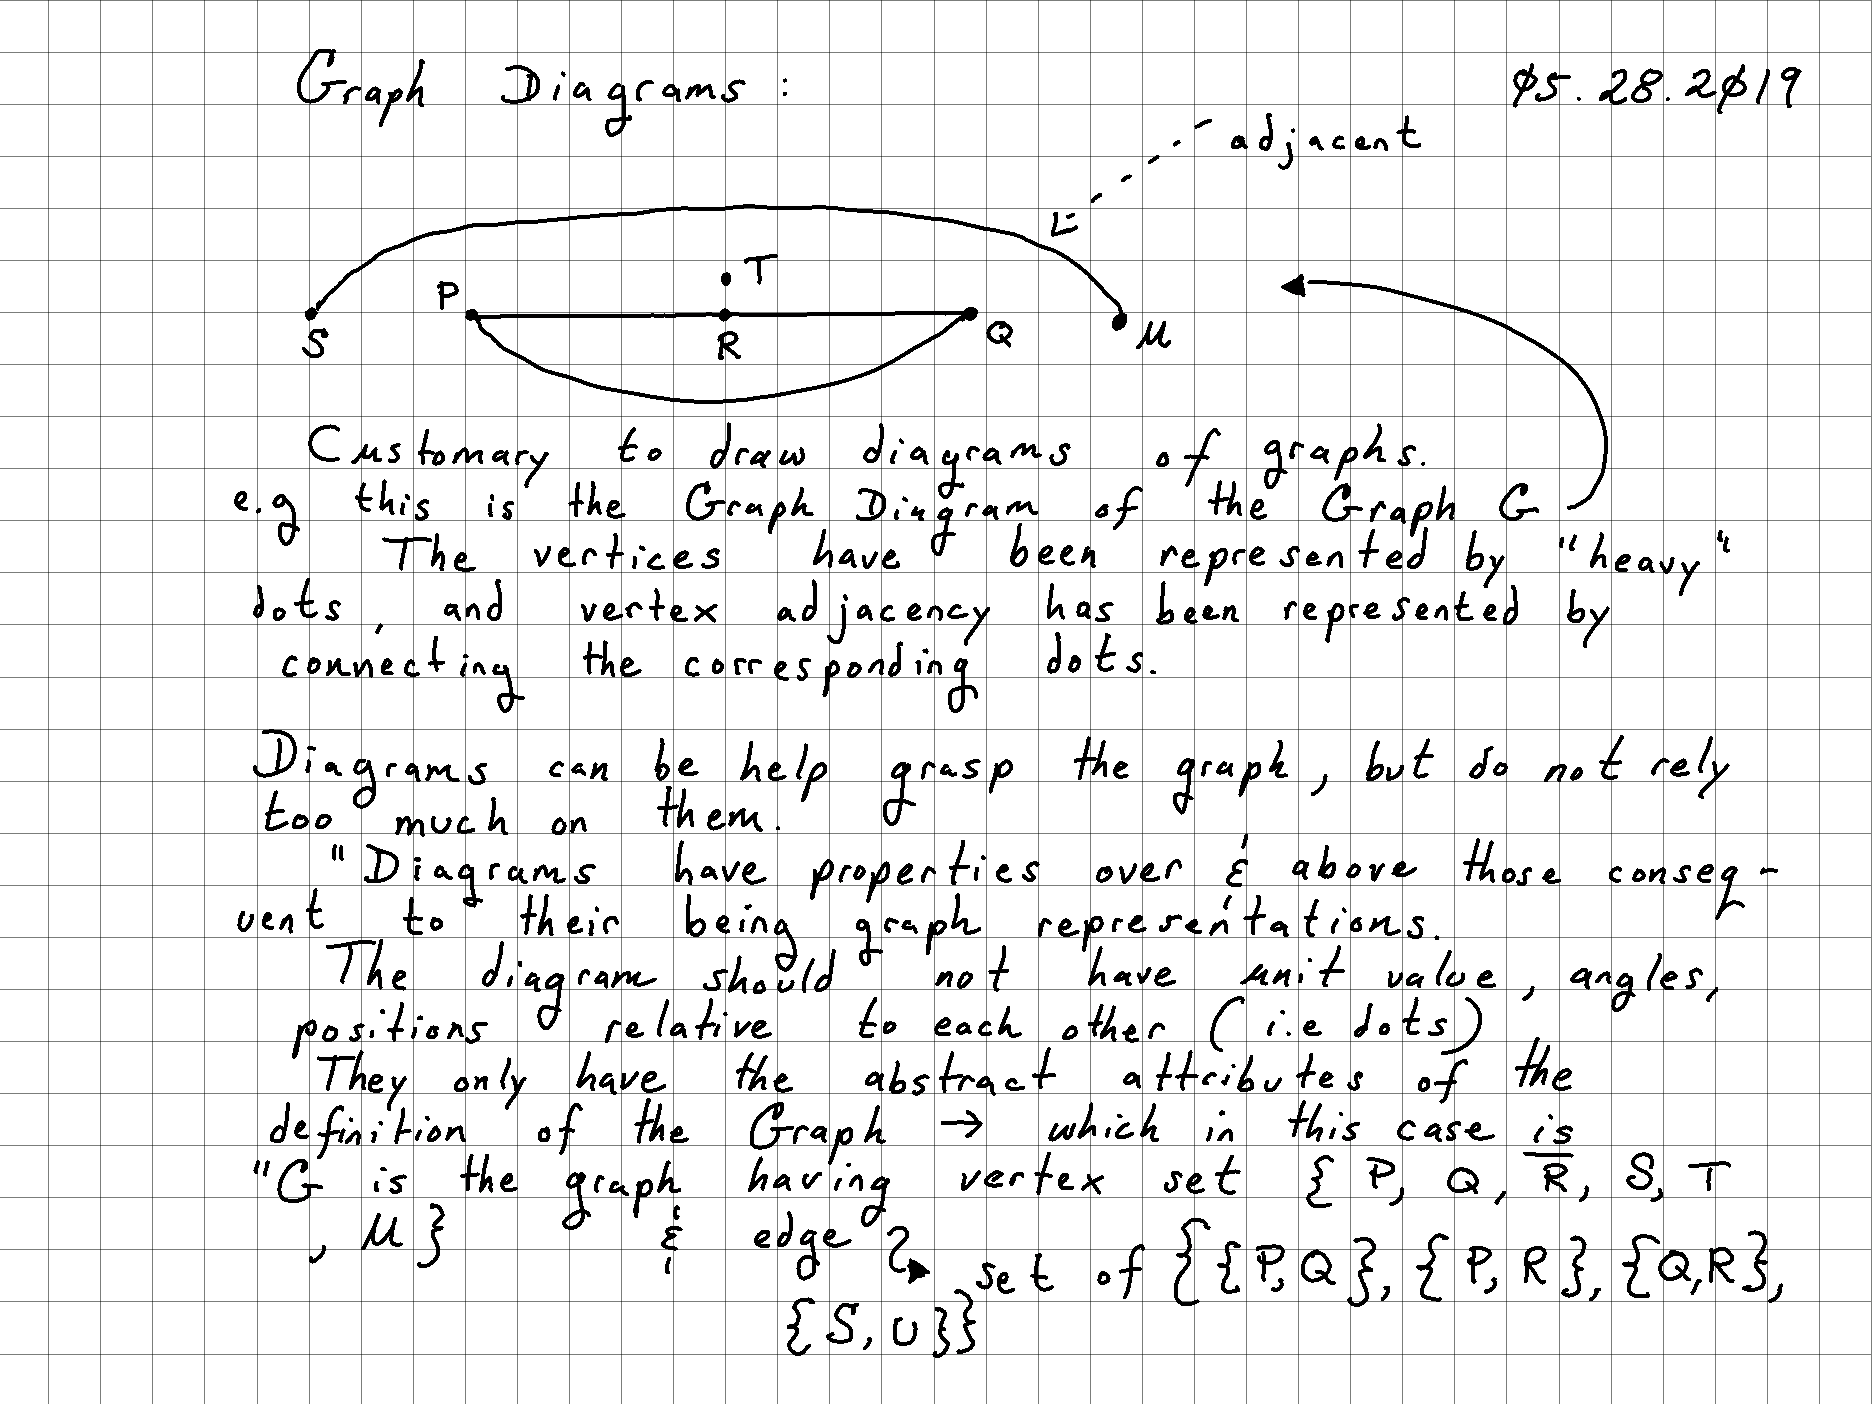 Graph Diagrams :
ø5. 28. 2ø19
adjacent
T
P
S
R
Q
U
Customary to draw diagrams of graphs.
e.g this is the Graph Diagram of the Graph G
The vertices have been represented by "heavy"
dots, and vertex adjacency has been represented by
connecting the corresponding dots.
Diagrams can be help grasp the graph, but do not rely
too much on them.
"Diagrams have properties over & above those conseq-
uent to their being graph representations.
The diagram should not have unit value, angles,
positions relative to each other (i.e dots)
They only have the abstract attributes of the
definition of the Graph → which in this case is
"G is the graph having vertex set { P, Q, R, S, T
, U } & edge
set of {{P,Q}, {P,R}, {Q,R},
{S,U}}